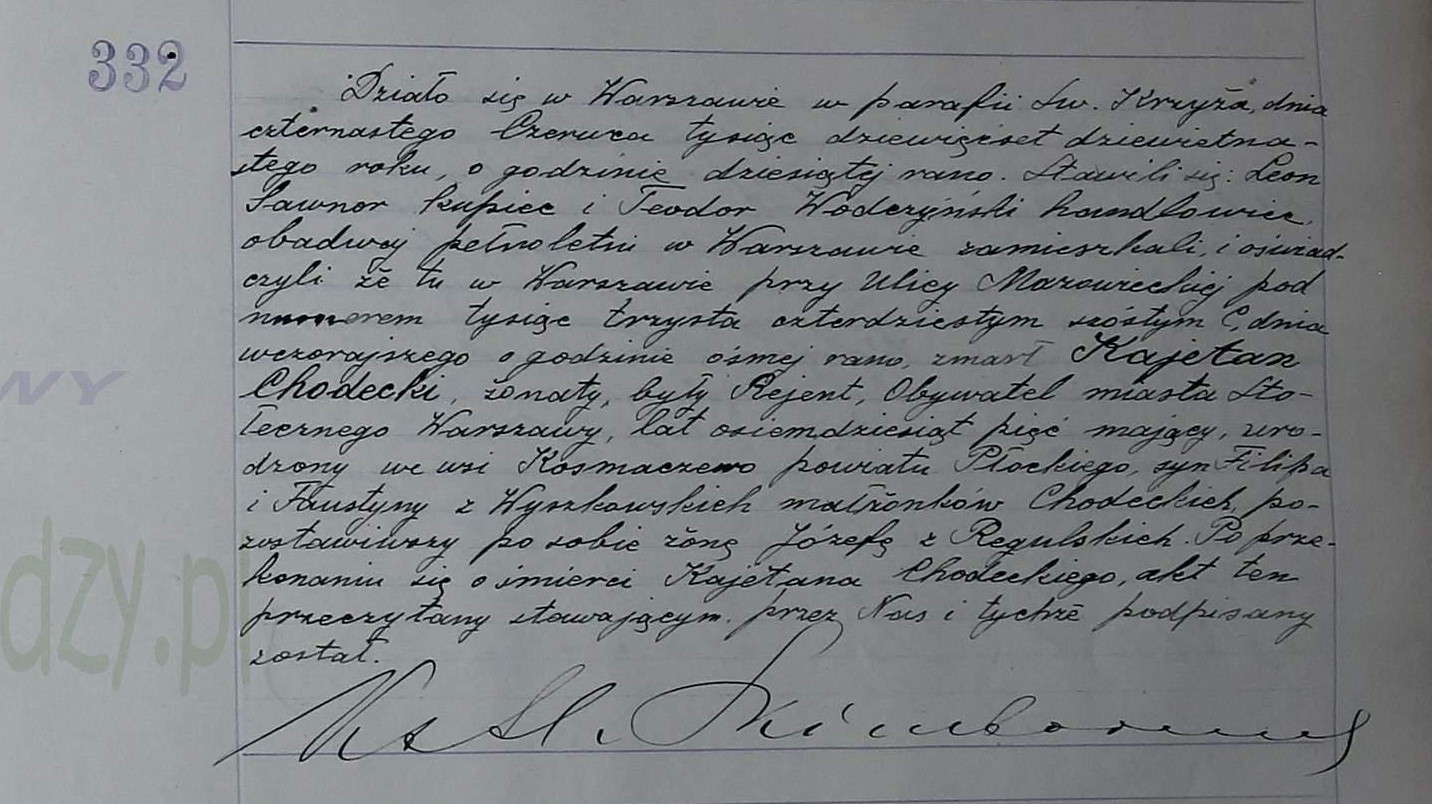 332
Działo się w Warszawie w parafii Św. Krzyża, dnia
czternastego Czerwca tysiąc dziewięćset dziewietna-
stego roku, o godzinie dziesiątej rano. Stawili się: Leon
Sawnor kupiec i Teodor Wodczyński handlowiec,
obadwaj pełnoletni w Warszawie zamieszkali, i oświad-
czyli że tu w Warszawie przy Ulicy Mazowieckiej pod
numerem tysiąc trzysta czterdziestym szóstym C, dnia
wczorajszego o godzinie ósmej rano, zmarł Kajetan
Chodecki, żonaty, były Rejent, Obywatel miasta Sto-
łecznego Warszawy, lat osiemdziesiąt pięć mający, uro-
dzony we wsi Kosmaczewo powiatu Płockiego, syn Filipa
i Faustyny z Wyszkowskich małżonków Chodeckich, po-
zostawiwszy po sobie żonę Józefę z Regulskich. Po prze-
konaniu się o śmierci Kajetana Chodeckiego, akt ten
przeczytany stawającym. przez Nas i tychże podpisany
został.
Ks. St.
WNY
dzy.pl